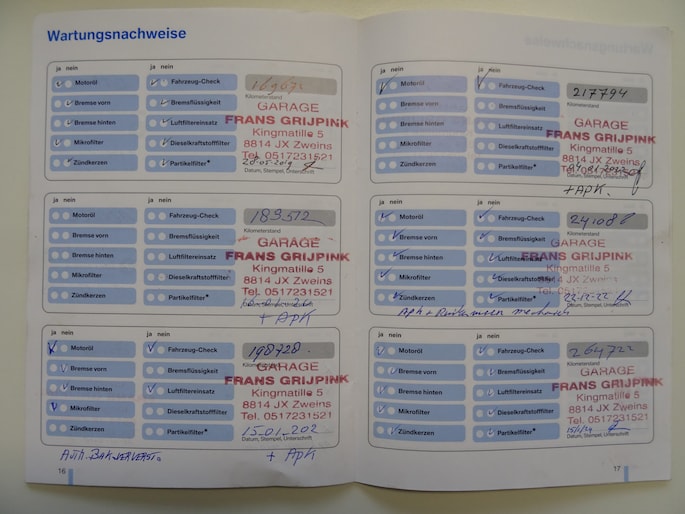 Wartungsnachweise
ja nein
ja nein
Motoröl
Fahrzeug-Check
Bremse vorn
Bremsflüssigkeit
Kilometerstand
Bremse hinten
Luftfiltereinsatz
Mikrofilter
Dieselkraftstofffilter
Zündkerzen
Partikelfilter*
GARAGE
FRANS GRIJPINK
Kingmatille 5
8814 JX Zweins
Tel. 0517231521
Datum, Stempel, Unterschrift
ja nein
ja nein
Motoröl
Fahrzeug-Check
183512
Bremse vorn
Bremsflüssigkeit
Kilometerstand
Bremse hinten
Luftfiltereinsatz
Mikrofilter
Dieselkraftstofffilter
Zündkerzen
Partikelfilter*
GARAGE
FRANS GRIJPINK
Kingmatille 5
8814 JX Zweins
Tel. 0517231521
+ APK
ja nein
ja nein
Motoröl
Fahrzeug-Check
198728
Bremse vorn
Bremsflüssigkeit
Bremse hinten
Luftfiltereinsatz
Mikrofilter
Dieselkraftstofffilter
Zündkerzen
Partikelfilter*
GARAGE
FRANS GRIJPINK
Kingmatille 5
8814 JX Zweins
Tel. 0517231521
15-01-202
Datum, Stempel, Unterschrift
+ APK
16
ja nein
ja nein
Motoröl
Fahrzeug-Check
217794
Bremse vorn
Bremsflüssigkeit
Kilometerstand
Bremse hinten
Luftfiltereinsatz
Mikrofilter
Dieselkraftstofffilter
Zündkerzen
Partikelfilter*
GARAGE
FRANS GRIJPINK
Kingmatille 5
8814 JX Zweins
Datum, Stempel, Unterschrift
+ APK.
ja nein
ja nein
Motoröl
Fahrzeug-Check
Bremse vorn
Bremsflüssigkeit
Kilometerstand
Bremse hinten
Mikrofilter
Dieselkraftstofffilter
Zündkerzen
Partikelfilter*
GARAGE
FRANS GRIJPINK
Kingmatille 5
8814 JX Zweins
22-12-22
ja nein
ja nein
Motoröl
Fahrzeug-Check
264722
Bremse vorn
Bremsflüssigkeit
Kilometerstand
Bremse hinten
Luftfiltereinsatz
Mikrofilter
Dieselkraftstofffilter
Zündkerzen
Partikelfilter*
GARAGE
FRANS GRIJPINK
Kingmatille 5
8814 JX Zweins
Tel. 0517231521
Datum, Stempel, Unterschrift
17